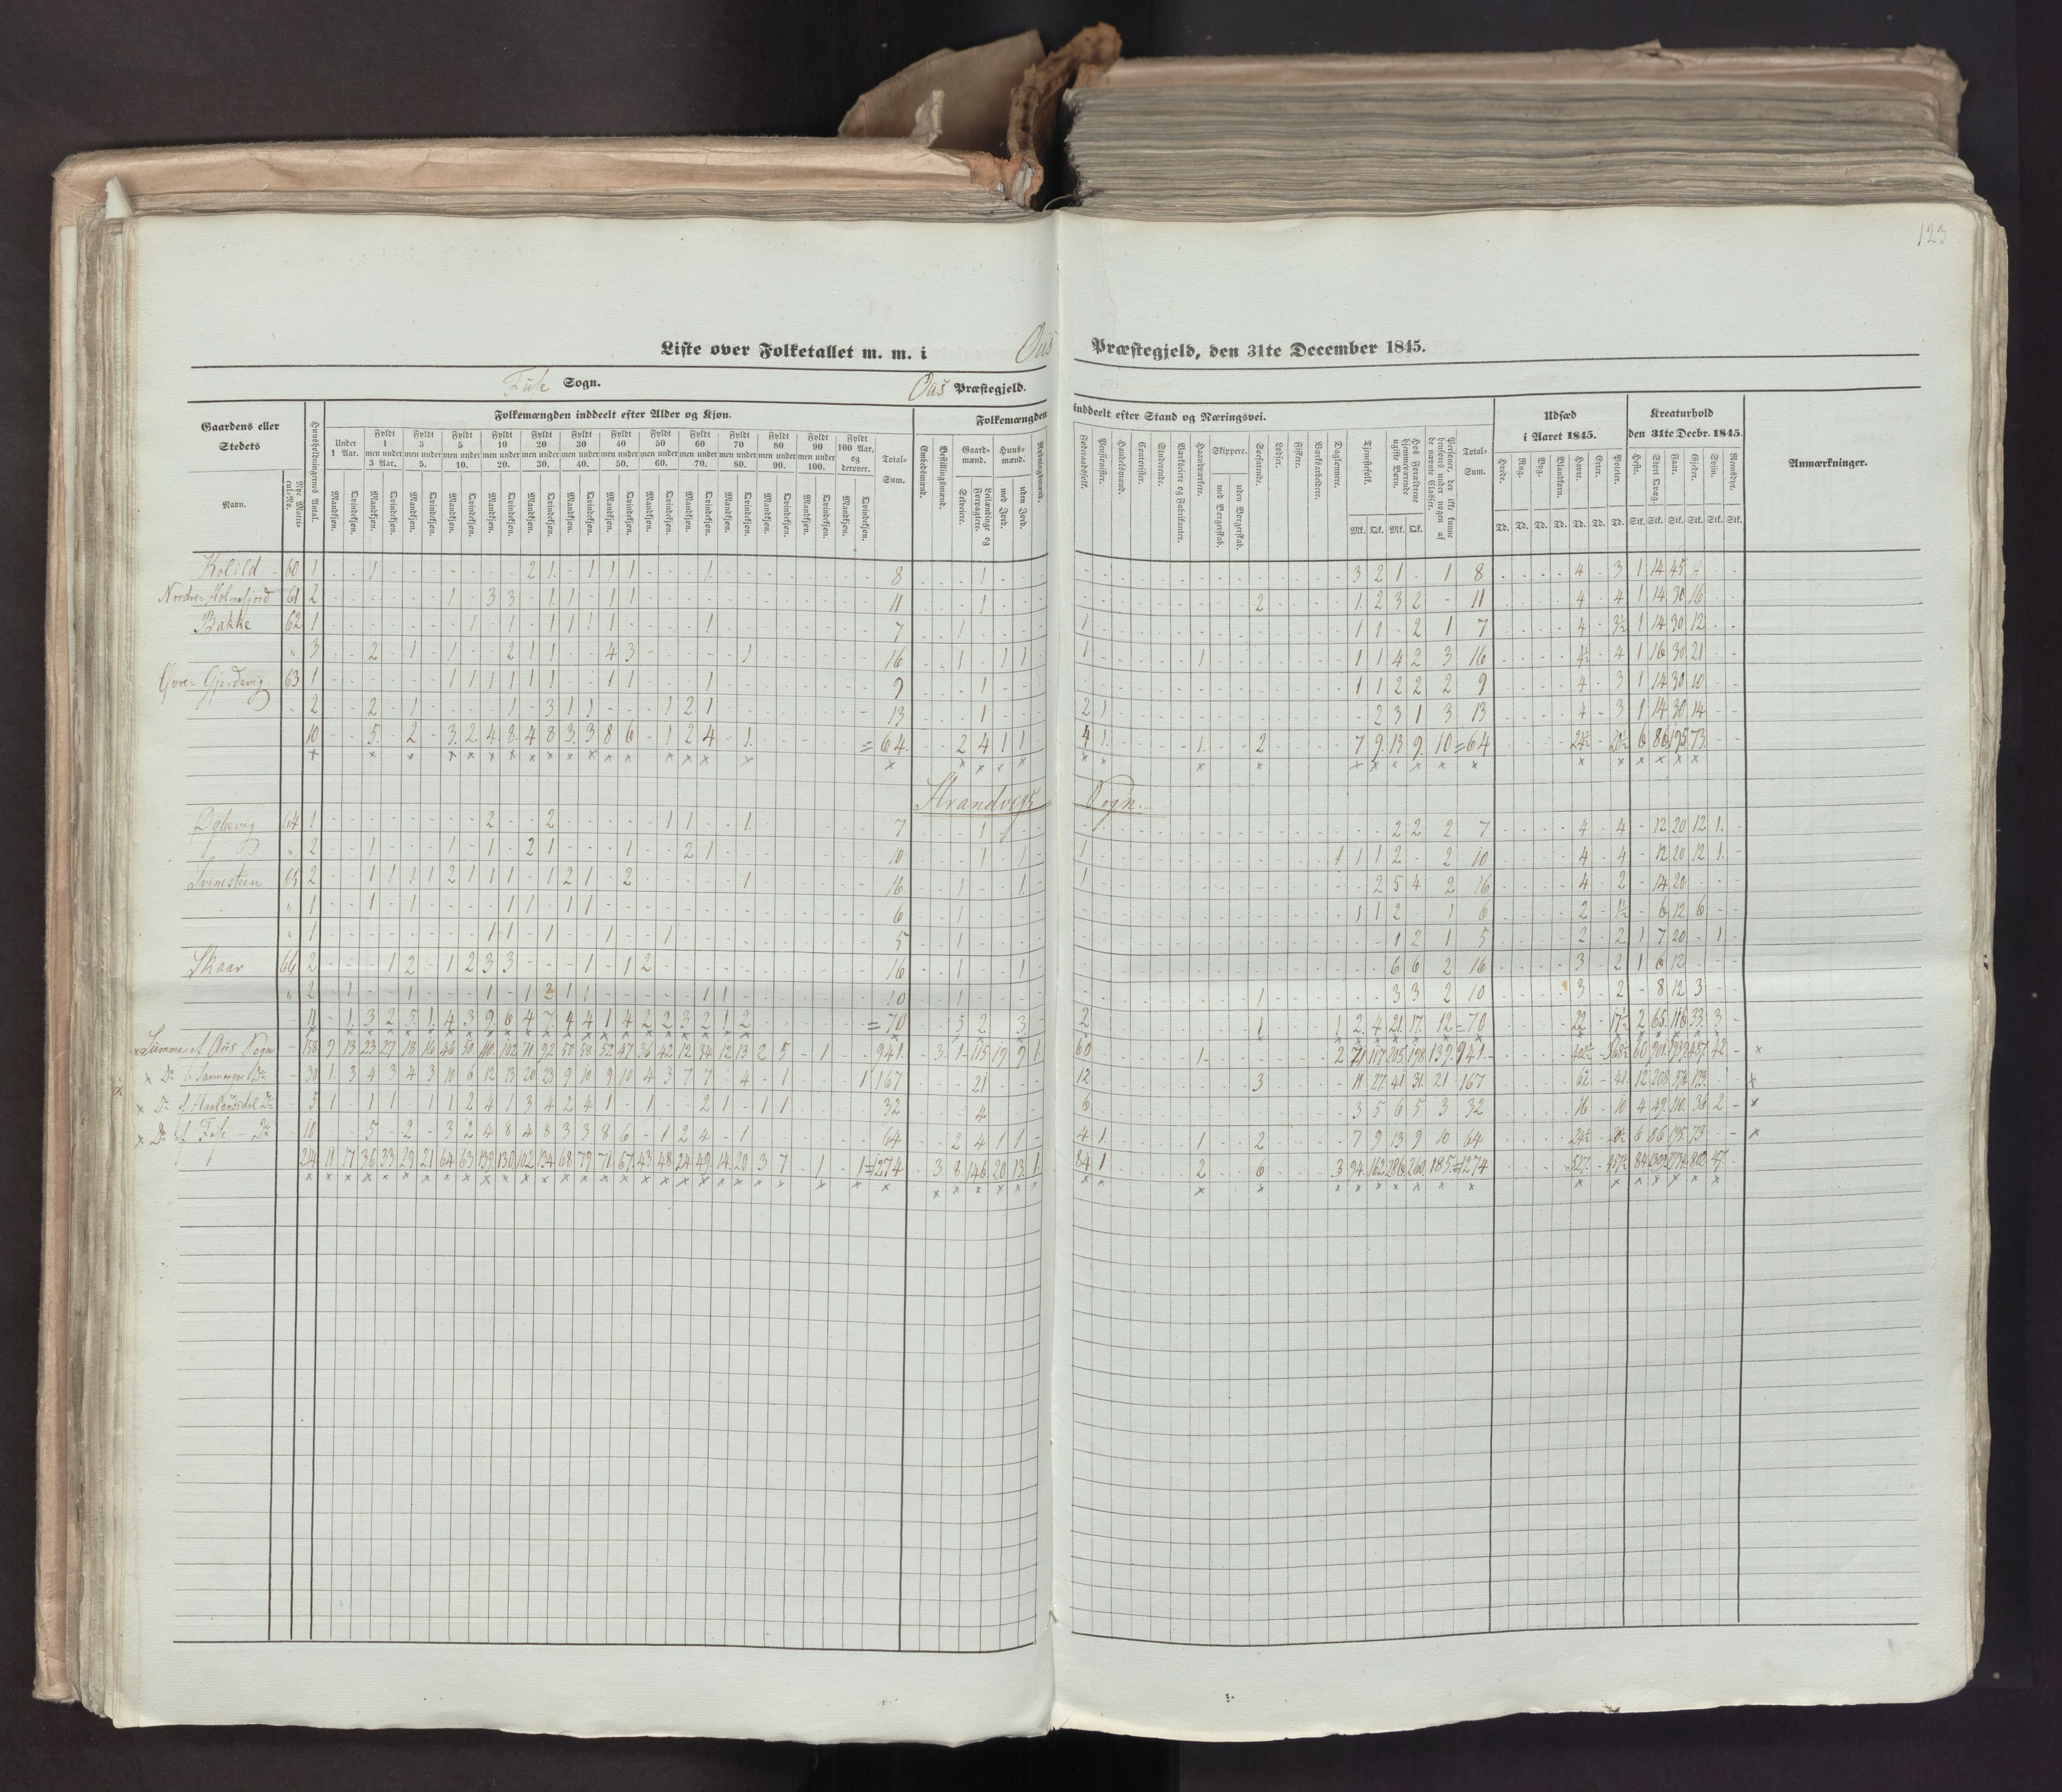 123
Liste over Folketallet m. m. i Ous Præstegjeld, den 31te December 1845.
Fuse Sogn. Ous Præstegjeld.
Gaardens eller Stedets Navn.
Nye Matricul-No.
Huusholdningernes Antal.
Folkemængden inddeelt efter Alder og Kjøn.
Under 1 Aar.
Fyldt 1 men under 3 Aar.
Fyldt 3 men under 5.
Fyldt 5 men under 10.
Fyldt 10 men under 20.
Fyldt 20 men under 30.
Fyldt 30 men under 40.
Fyldt 40 men under 50.
Fyldt 50 men under 60.
Fyldt 60 men under 70.
Fyldt 70 men under 80.
Fyldt 80 men under 90.
Fyldt 90 men under 100.
Fyldt 100 Aar, og derover.
Mandkjøn. Qvindekjøn.
Total-Sum.
Folkemængden inddeelt efter Stand og Næringsvei.
Embedsmænd.
Bestillingsmænd.
Gaardmænd.
Selveiere.
Leilændinge og Forpagtere.
Huusmænd.
med Jord.
uden Jord.
Rydningsmænd.
Føderaadsfolk.
Pensionister.
Handelsmænd.
Contorister.
Studerende.
Værkseiere og Fabrikanter.
Haandværkere.
Skippere.
med Borgerskab.
uden Borgerskab.
Søefarende.
Lodser.
Fiskere.
Værksarbeidere.
Daglønnere.
Tjenestefolk.
Mk. Qk.
Hos Forældrene hjemmeværende ugifte Børn.
Mk. Qk.
Personer, der ikke kunne henføres under nogen af de nævnte Classer.
Total-Sum.
Udsæd i Aaret 1845.
Hvede. Rug. Byg. Blandkorn. Havre. Erter. Poteter.
Td. Td. Td. Td. Td. Td. Td.
Kreaturhold den 31te Decbr. 1845.
Heste. Stort Qvæg. Faar. Gjeder. Sviin. Rensdyr.
Stk. Stk. Stk. Stk. Stk. Stk.
Anmærkninger.
Kolild 60 1 1 2 1 1 1 1 1 8 1 3 2 1 1 8 4 3 1 14 45
Nordre-Holmefjord 61 2 1 3 3 1 1 1 1 11 1 2 1 2 3 2 11 4 4 1 14 30 16
Bakke 62 1 1 1 1 1 1 1 1 7 1 1 1 1 2 1 7 4 3½ 1 14 30 12
" 3 2 1 1 2 1 1 4 3 1 16 1 1 1 1 1 1 1 4 2 3 16 4½ 4 1 16 30 21
Øvre-Gjerdevig 63 1 1 1 1 1 1 1 1 1 1 9 1 1 1 2 2 2 9 4 3 1 14 30 10
" 2 2 1 1 3 1 1 1 2 1 13 1 2 1 2 3 1 3 13 4 3 1 14 30 14
10 5 2 3 2 4 8 4 8 3 3 8 6 1 2 4 1 = 64 2 4 1 1 4 1 1 2 7 9 13 9 10 = 64 24½ 20½ 6 86 195 73
Strandvigs Sogn.
64 1 2 2 1 1 1 7 1 2 2 2 7 4 4 12 20 12 1
" 2 1 1 1 2 1 1 2 1 10 1 1 1 1 1 1 2 2 10 4 4 12 20 12 1
Svinesteen 65 2 1 1 1 1 2 1 1 1 1 2 1 2 1 16 1 1 1 2 5 4 2 16 4 2 14 20
" 1 1 1 1 1 1 1 6 1 1 1 2 1 6 2 1½ 6 12 6
" 1 1 1 1 1 1 5 1 1 2 1 5 2 2 1 7 20 1
Skaar 66 2 1 2 1 2 3 3 1 1 2 16 1 1 6 6 2 16 3 2 1 6 12
" 2 1 1 1 1 2 1 1 1 1 10 1 1 3 3 2 10 3 2 8 12 3
11 1 3 2 5 1 4 3 9 6 4 7 4 4 1 4 2 2 3 2 1 2 = 70 5 2 3 2 1 1 2 4 21 17 12 = 70 22 17½ 2 65 116 33 3
Summa af Ous Sogn 158 9 13 23 27 18 16 46 50 110 102 71 92 50 58 52 47 36 42 12 34 12 13 2 5 1 941 3 1 115 19 9 1 60 1 2 71 117 205 198 139 941
Do 30 1 3 4 3 4 3 10 6 12 13 20 23 9 10 9 10 4 3 7 7 4 1 1 167 21 12 3 11 27 41 31 21 167 62 41 12 208
Do af Haalandsdal Do 5 1 1 1 1 1 2 4 1 3 4 2 4 1 1 2 1 1 1 32 4 6 3 5 6 5 3 32 16 10 4 49 110 36 2
Do af Fuse Do 10 5 2 3 2 4 8 4 8 3 3 8 6 1 2 4 1 64 2 4 1 1 4 1 1 2 7 9 13 9 10 64 24½ 20½ 6 86 195 73
214 11 17 36 33 29 21 64 63 139 130 102 134 68 79 71 67 43 48 24 49 14 20 3 7 1 1 = 1274 3 8 146 20 13 1 84 1 2 6 3 94 162 286 260 185 = 1274